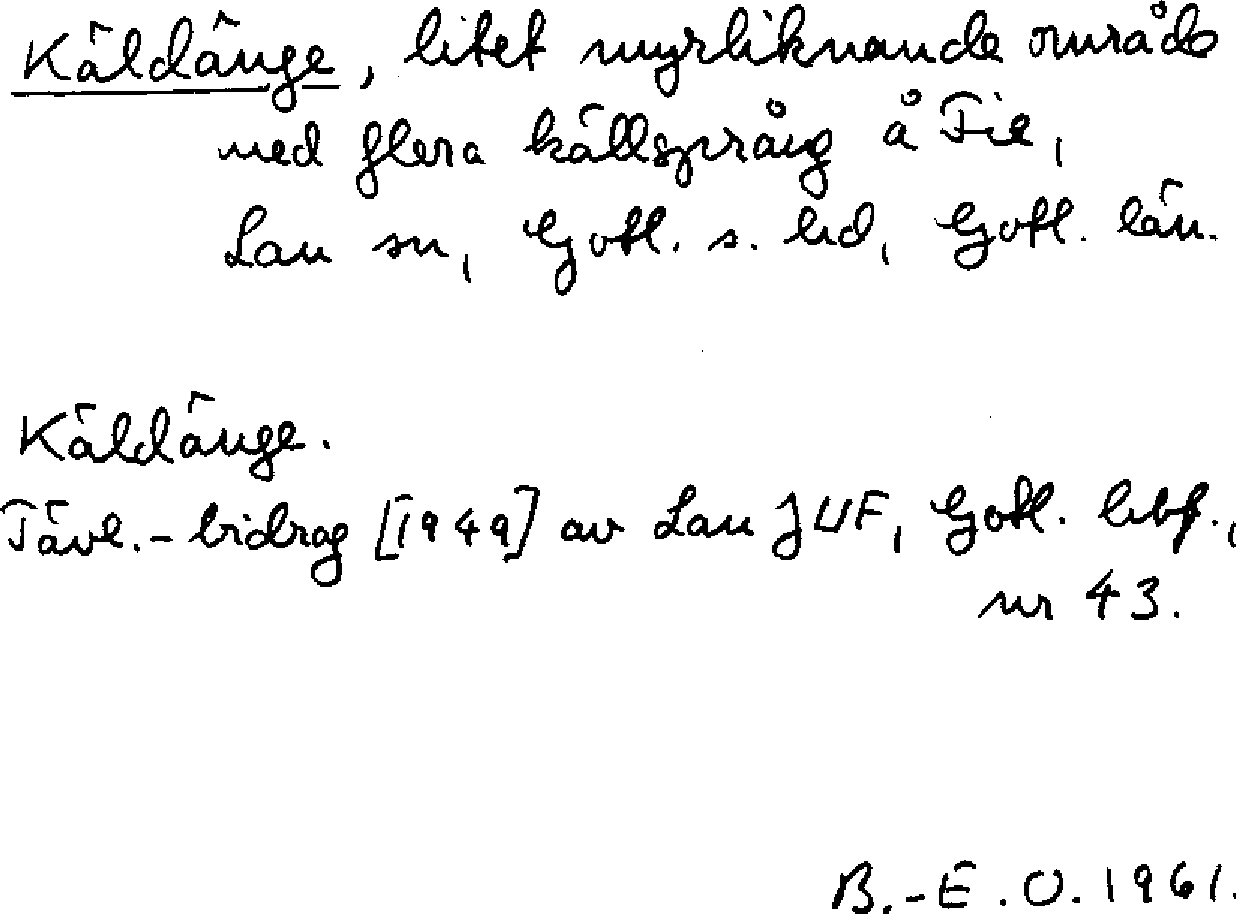 Käldänge, litet myrliknande område
med flera källsprång å Fie,
Lau sn, Gotl. s. hd, Gotl. län.
Käldänge.
Tävl.-bidrag [1949] av Lau JUF, Gotl. hbf.,
nr 43.
B.-E. O. 1961.